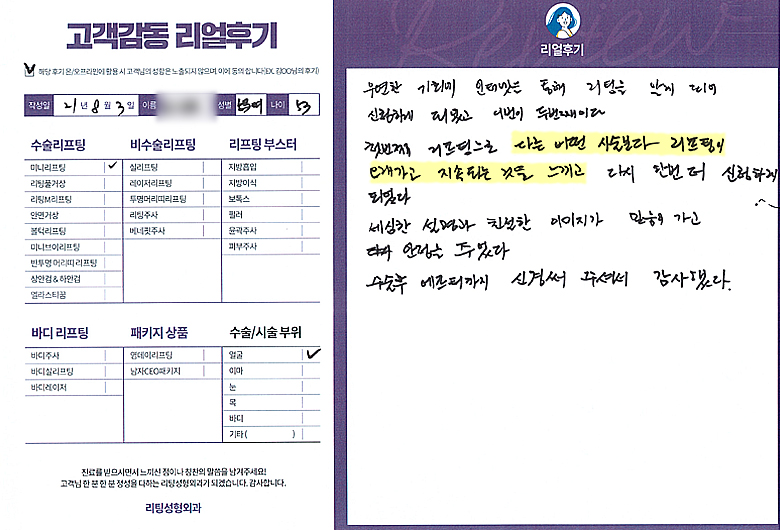 고객감동 리얼후기
해당 후기 온/오프라인에 활용 시 고객님의 성함은 노출되지 않으며, 이에 동의 합니다(EX. 김OO님의 후기)
작성일 21년 8월 3일 이름 성별 여 나이 53
수술리프팅
미니리프팅
리팅풀거상
리팅M리프팅
안면거상
볼턱리프팅
미니브이리프팅
반투명 머리띠 리프팅
상안검 & 하안검
엘라스티꿈
비수술리프팅
실리프팅
레이저리프팅
투명머리띠리프팅
리팅주사
베네핏주사
리프팅 부스터
지방흡입
지방이식
보톡스
필러
윤곽주사
피부주사
바디 리프팅
바디주사
바디실리프팅
바디레이저
패키지 상품
원데이리프팅
남자CEO패키지
수술/시술 부위
얼굴
이마
눈
목
바디
기타 ( )
진료를 받으시면서 느끼신 점이나 칭찬의 말씀을 남겨주세요!
고객님 한 분 한 분 정성을 다하는 리팅성형외과가 되겠습니다. 감사합니다.
리팅성형외과
Review
리얼후기
우연한 기회에 인터넷을 통해 리팅을 알게 되어
신청하게 되었고 이번이 두번째이다
첫번째 리프팅으로 다른 어떤 시술보다 리프팅이
오래가고 지속되는 것을 느끼고 다시 한번 더 신청하게
되었다
세심한 설명과 친절한 이미지가 믿음이 가고
안정을 주었다
수술후 에프터까지 신경써 주셔서 감사했다.